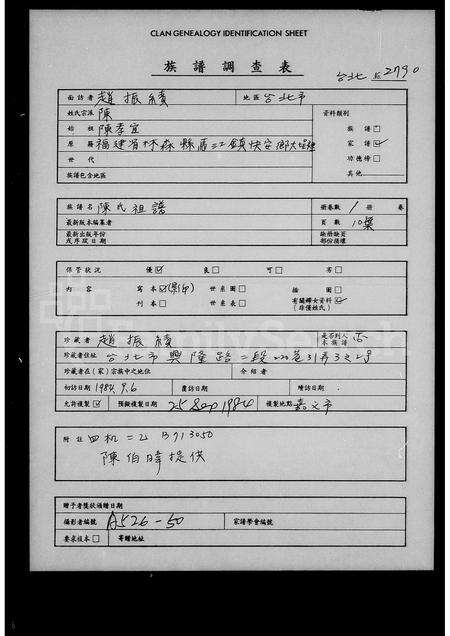 CLAN GENEALOGY IDENTIFICATION SHEET
族譜調查表
台北 2790
面訪者 趙振績 地區 台北市
姓氏宗派 陳 資料類別
始祖 陳孝宜 族譜□
原籍 福建省林森縣 鎮快安鄉 家譜☑
世代 功德榜□
族譜包含地區 其他
族譜名 陳氏祖譜 冊卷數 1 冊 卷
最新版本編纂者 頁數 10葉
最新出版年份或序跋日期 缺冊缺頁部份損壞
保管狀況 優☑ 良□ 可□ 劣□
內容 寫本☑(影印) 世系圖□ 插圖□ 有關婦女資料☑(非僅姓氏)
刊本□ 世系表□
珍藏者 趙振績 是否列入本族譜 否
珍藏者住址 台北市興隆路二段220巷31弄3之2號
珍藏者在(家)宗族中之地位 介紹者
初訪日期 1984.9.6 覆訪日期 續訪日期
允許複製☑ 預擬複製日期 25 Sep 1984 複製地點 嘉义市
附註 四机二乙 B713050
陳伯暐提供
贈予者獎狀頒贈日期
攝影者編號 A526-50 家譜學會編號
要求複本□ 寄贈地址
FamilySearch